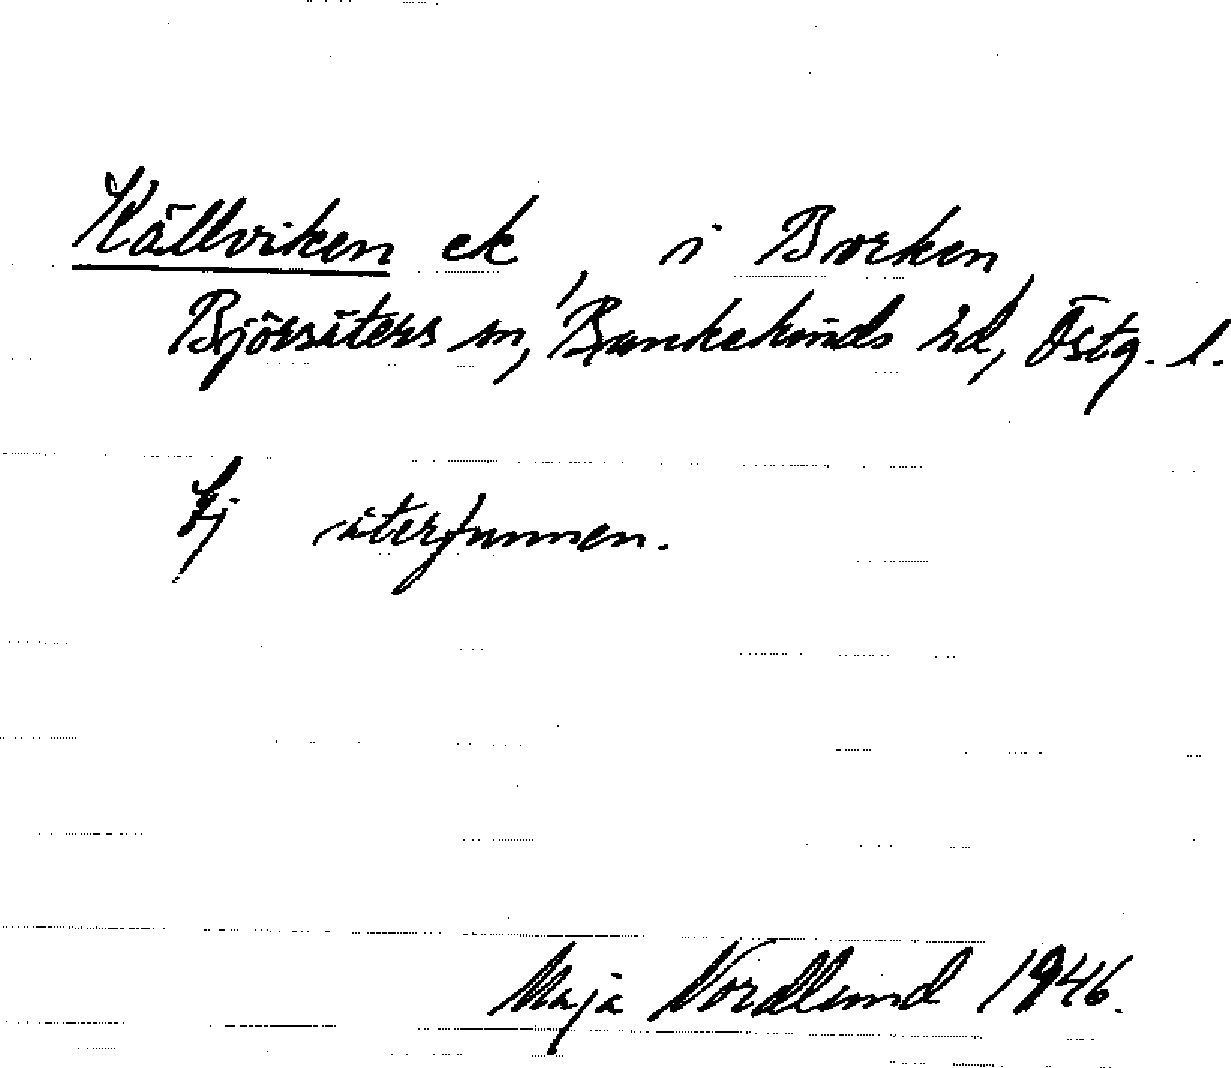 Källviken ek, i Borken,
Björsäters sn, Bankekinds hd, Östg. l.
Ej återfunnen.
Maja Nordlund 1946.